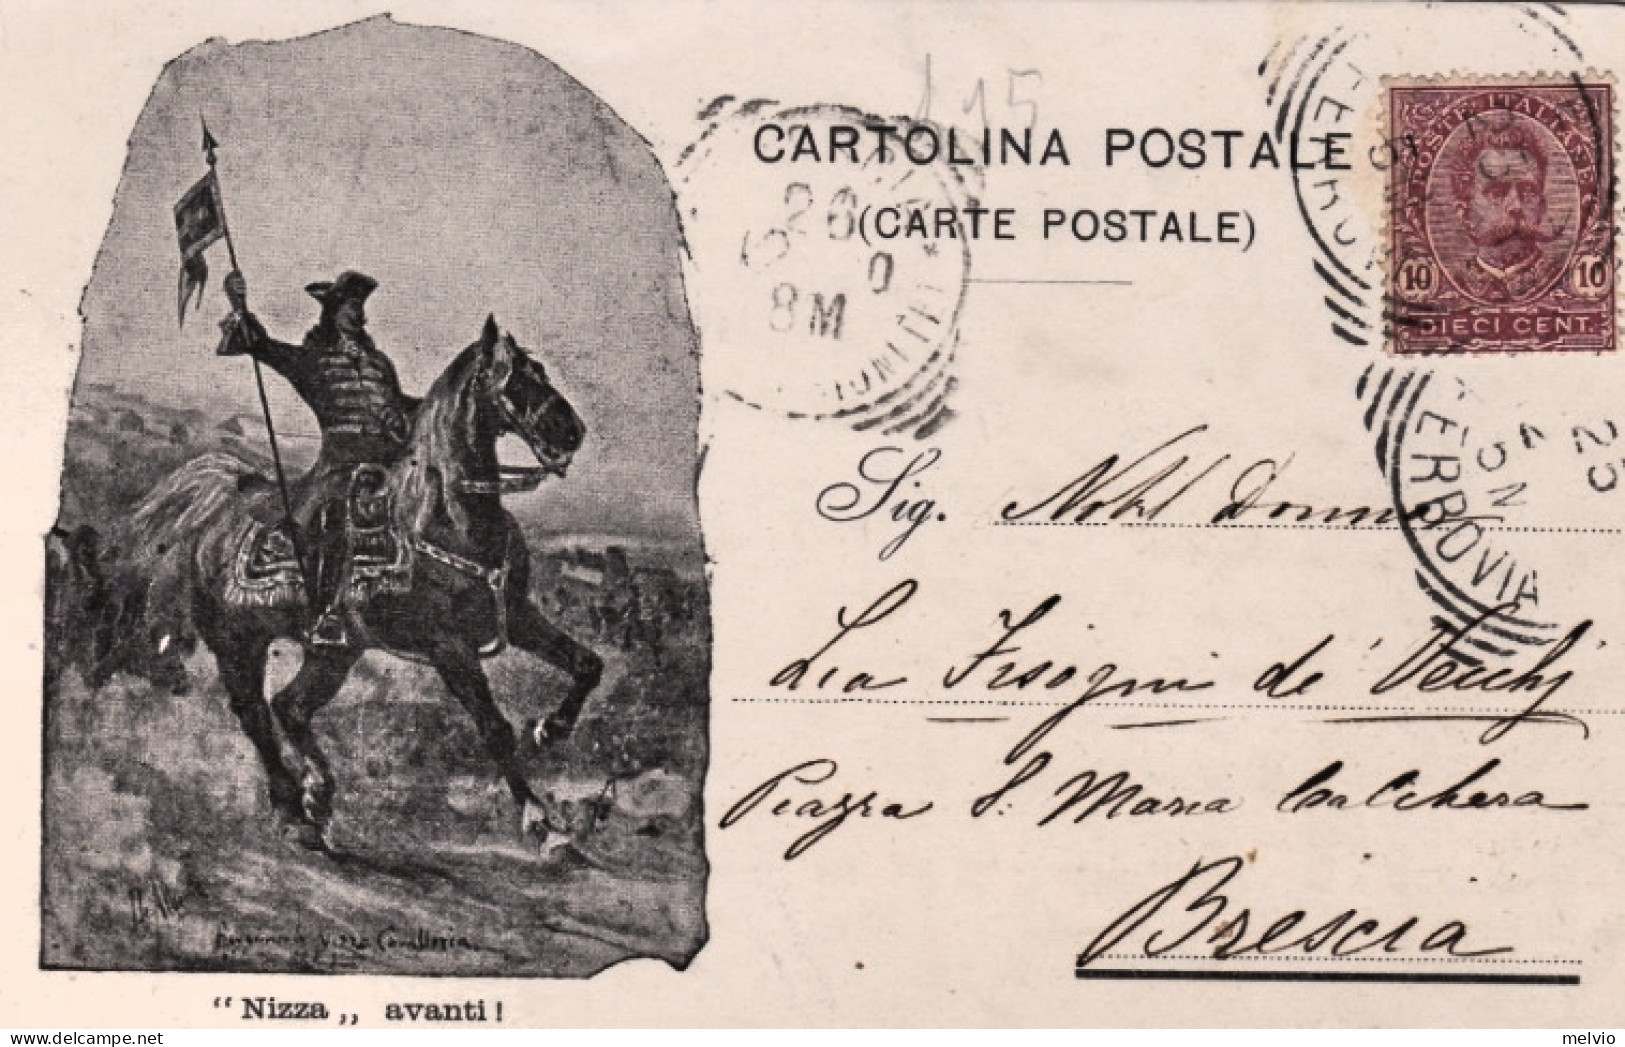 115
CARTOLINA POSTALE
(CARTE POSTALE)
POSTE ITALIANE
10 10
DIECI CENT.
26
9 0
8 M
FERROVIA
25
4 5 N
FERROVIA
Sig. Nobl Donna
Lia Fisogni de' Vecchj
Piazza S. Maria Calchera
Brescia
Nizza Cavalleria
“Nizza„ avanti!
melvio